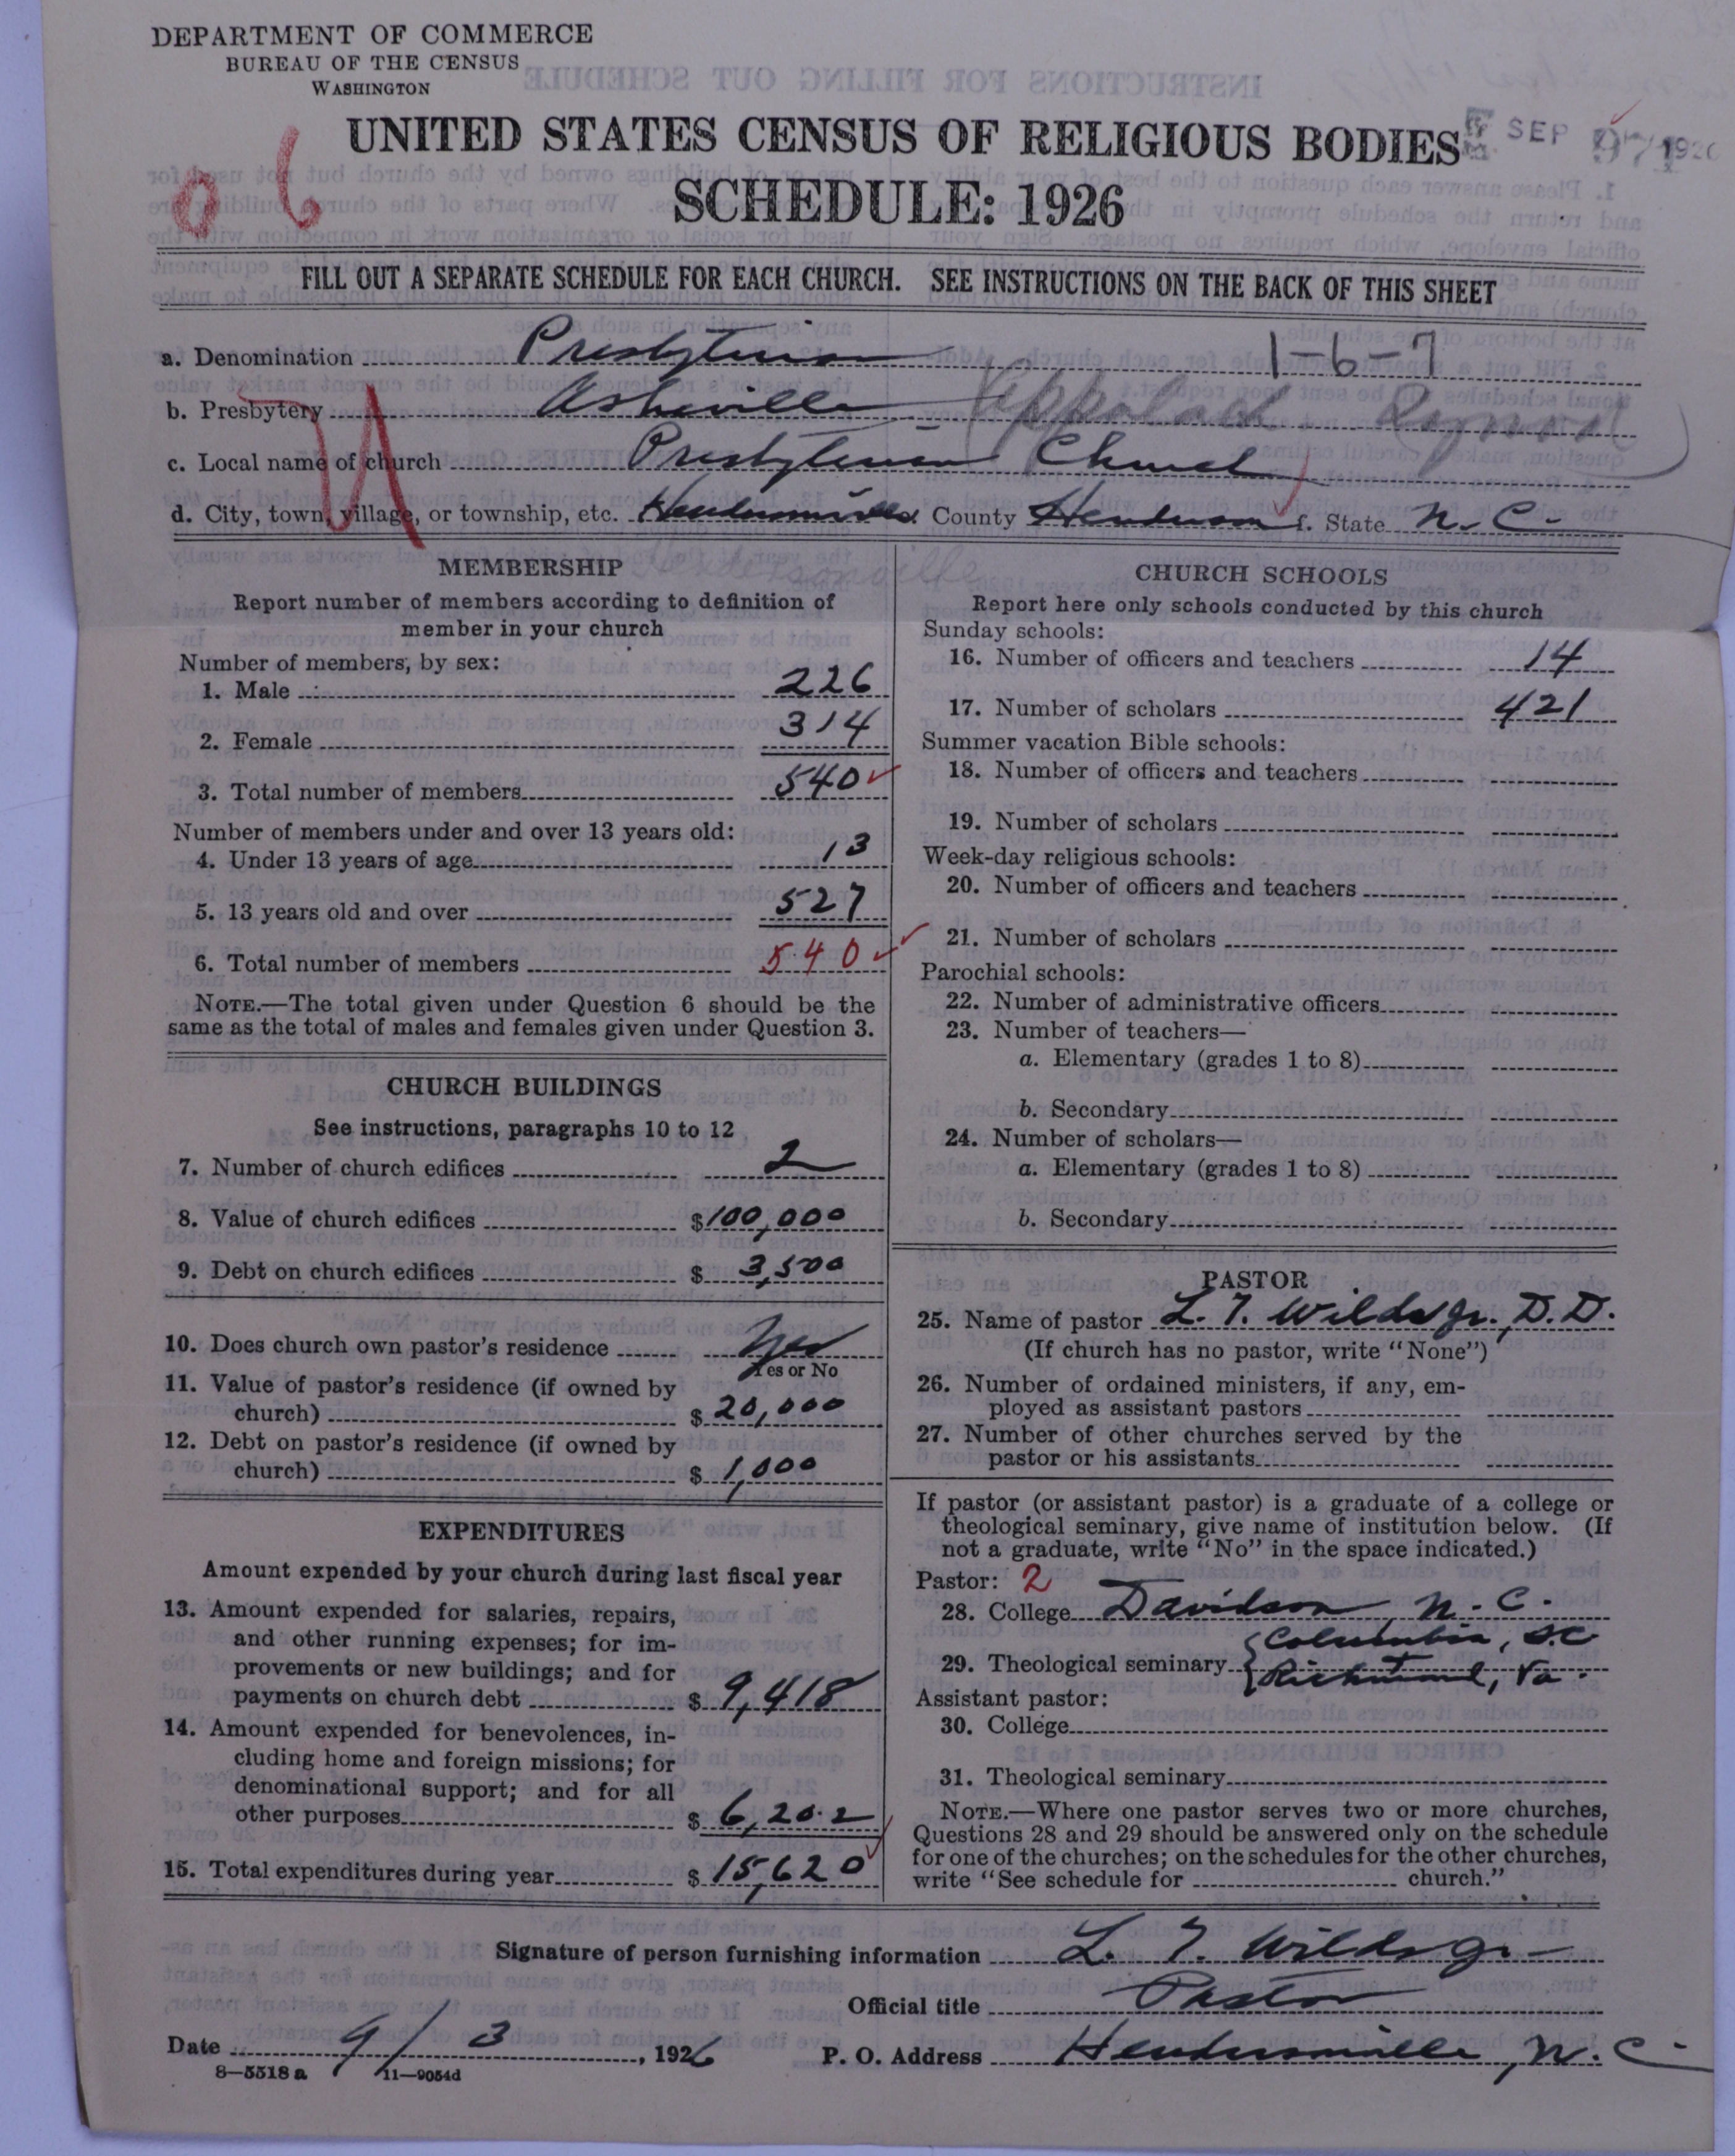 DEPARTMENT OF COMMERCE
BUREAU OF THE CENSUS
WASHINGTON
UNITED STATES CENSUS OF RELIGIOUS BODIES
SEP 9 1926
SCHEDULE: 1926
06
FILL OUT A SEPARATE SCHEDULE FOR EACH CHURCH. SEE INSTRUCTIONS ON THE BACK OF THIS SHEET
a. Denomination Presbyterian 1-6-7
b. Presbytery Asheville (Appalach Synod)
c. Local name of church Presbyterian Church
d. City, town, village, or township, etc. Hendersonville County Henderson f. State N. C.
U
Hendersonville
MEMBERSHIP
Report number of members according to definition of
member in your church
Number of members, by sex:
1. Male 226
2. Female 314
3. Total number of members 540
Number of members under and over 13 years old:
4. Under 13 years of age 13
5. 13 years old and over 527
6. Total number of members 540
NOTE.—The total given under Question 6 should be the
same as the total of males and females given under Question 3.
CHURCH BUILDINGS
See instructions, paragraphs 10 to 12
7. Number of church edifices 2
8. Value of church edifices $100,000
9. Debt on church edifices $ 3,500
10. Does church own pastor's residence Yes
Yes or No
11. Value of pastor's residence (if owned by
church) $ 20,000
12. Debt on pastor's residence (if owned by
church) $ 1,000
EXPENDITURES
Amount expended by your church during last fiscal year
13. Amount expended for salaries, repairs,
and other running expenses; for im-
provements or new buildings; and for
payments on church debt $ 9,418
14. Amount expended for benevolences, in-
cluding home and foreign missions; for
denominational support; and for all
other purposes $ 6,202
15. Total expenditures during year $ 15,620
CHURCH SCHOOLS
Report here only schools conducted by this church
Sunday schools:
16. Number of officers and teachers 14
17. Number of scholars 421
Summer vacation Bible schools:
18. Number of officers and teachers
19. Number of scholars
Week-day religious schools:
20. Number of officers and teachers
21. Number of scholars
Parochial schools:
22. Number of administrative officers
23. Number of teachers—
a. Elementary (grades 1 to 8)
b. Secondary
24. Number of scholars—
a. Elementary (grades 1 to 8)
b. Secondary
PASTOR
25. Name of pastor L. T. Wilds Jr., D.D.
(If church has no pastor, write "None")
26. Number of ordained ministers, if any, em-
ployed as assistant pastors
27. Number of other churches served by the
pastor or his assistants
If pastor (or assistant pastor) is a graduate of a college or
theological seminary, give name of institution below. (If
not a graduate, write "No" in the space indicated.)
Pastor: 2
28. College Davidson, N. C.
29. Theological seminary { Columbia, S.C.
Richmond, Va.
Assistant pastor:
30. College
31. Theological seminary
NOTE.—Where one pastor serves two or more churches,
Questions 28 and 29 should be answered only on the schedule
for one of the churches; on the schedules for the other churches,
write "See schedule for church."
Signature of person furnishing information L. T. Wilds Jr.
Official title Pastor
Date 9/3, 1926 P. O. Address Hendersonville, N. C.
8—5518 a 11—9054d